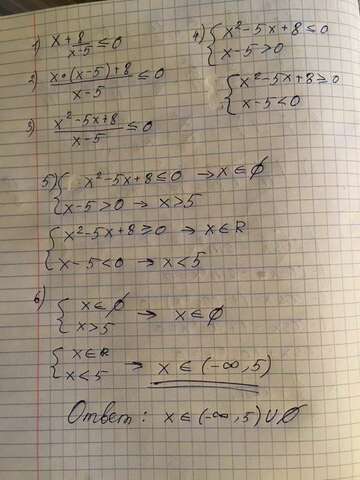 1) x + 8/(x-5) ≤ 0
2) (x•(x-5)+8)/(x-5) ≤ 0
3) (x²-5x+8)/(x-5) ≤ 0
4) { x²-5x+8 ≤ 0
x-5 > 0
{ x²-5x+8 ≥ 0
x-5 < 0
5) { x²-5x+8 ≤ 0 → x ∈ ∅
x-5 > 0 → x > 5
{ x²-5x+8 ≥ 0 → x ∈ R
x-5 < 0 → x < 5
6)
{ x ∈ ∅
x > 5 → x ∈ ∅
{ x ∈ R
x < 5 → x ∈ (-∞, 5)
Ответ: x ∈ (-∞, 5) U ∅